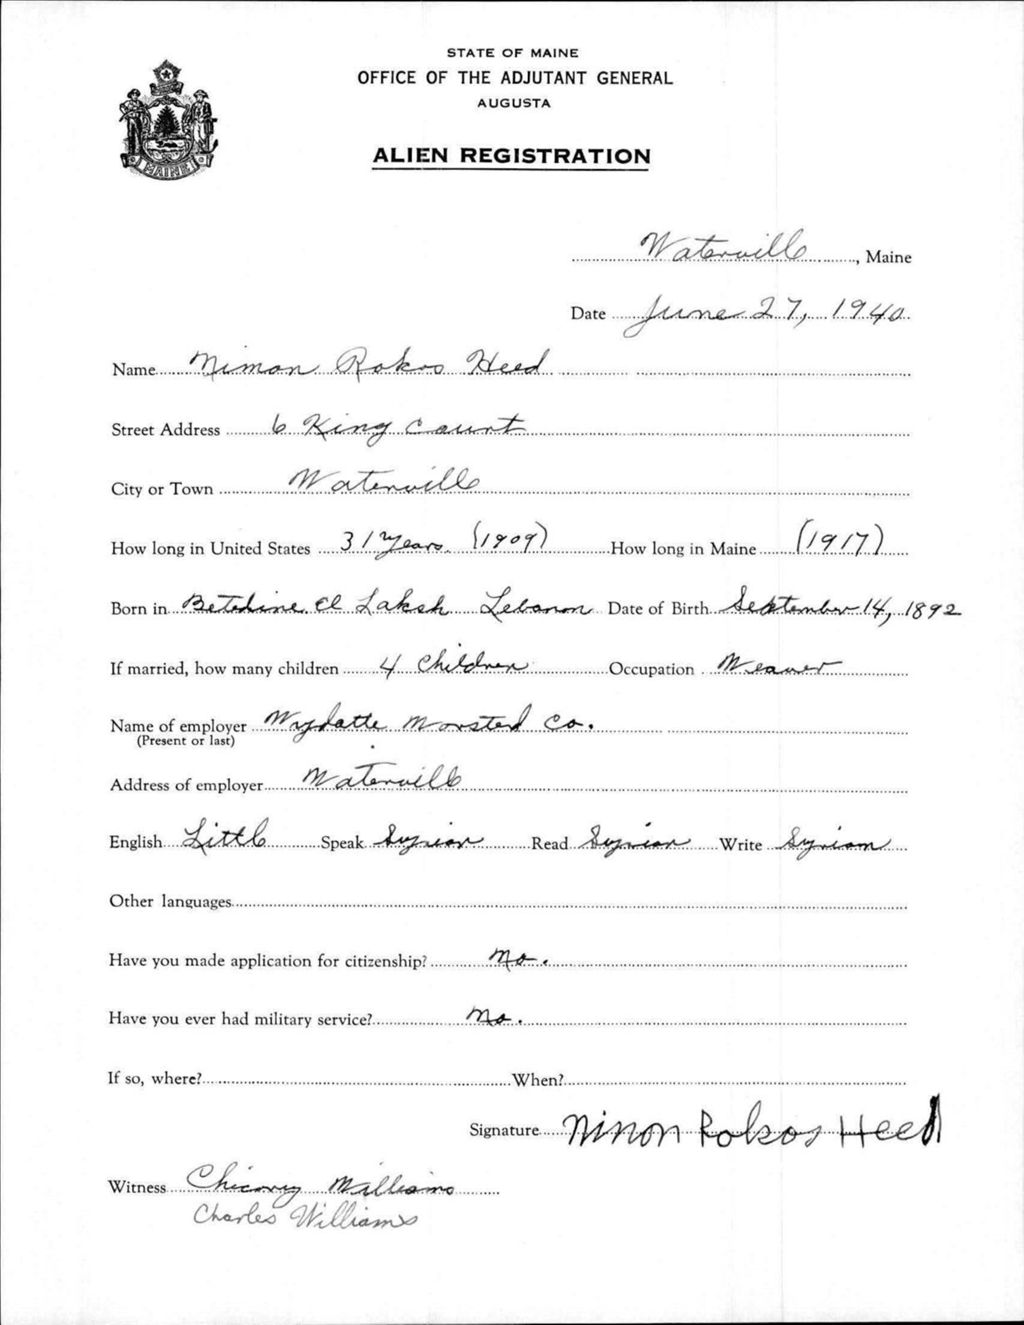 STATE OF MAINE
OFFICE OF THE ADJUTANT GENERAL
AUGUSTA
MAINE
ALIEN REGISTRATION
Waterville, Maine
Date June 27, 1940
Name Nimon Rokos Heed
Street Address 6 King Court
City or Town Waterville
How long in United States 31 Years (1909) How long in Maine (1917)
Born in Betedine el Laksh Lebanon Date of Birth September 14, 1892
If married, how many children 4 Children Occupation Weaver
Name of employer Wydatte Worsted Co.
(Present or last)
Address of employer Waterville
English Little Speak Syrian Read Syrian Write Syrian
Other languages
Have you made application for citizenship? No.
Have you ever had military service? No.
If so, where? When?
Signature Ninon Rokos Heed
Witness Williams
Charles Williams